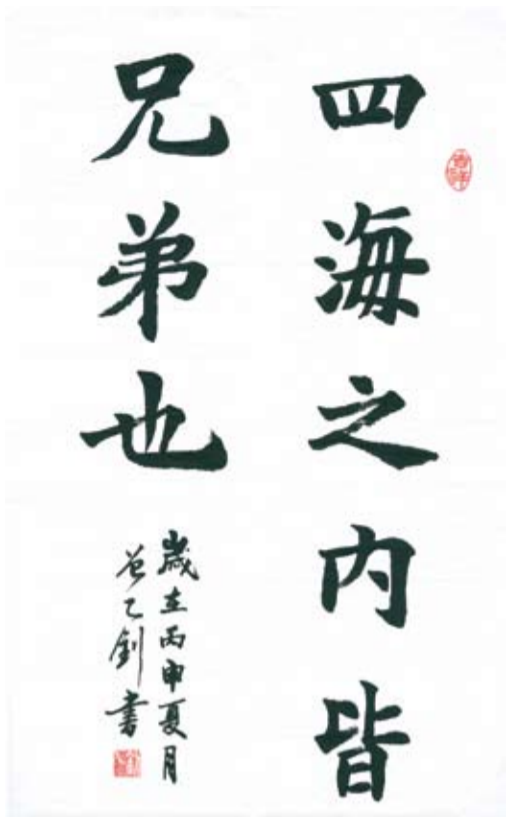 四海之内皆
兄弟也
歲在丙申夏月
書